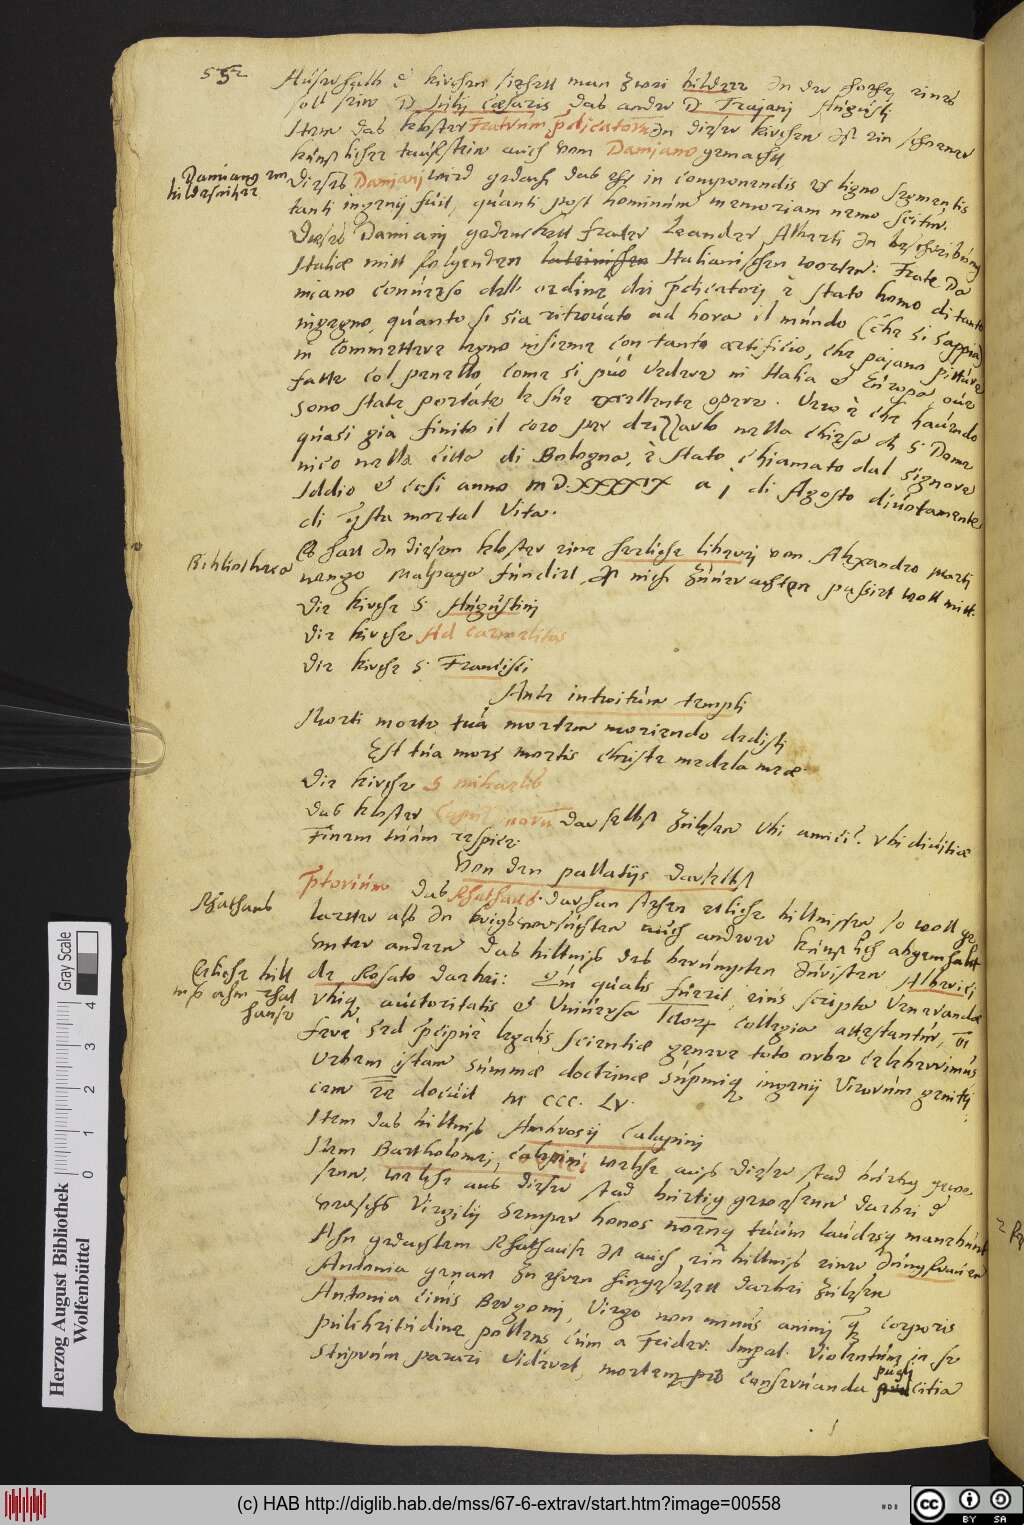 552
Ausserhalb d kirchen siehett man zwei bilder In der hoehe, eines
soll sein D. Julij Cæsaris, das ander D. Trajanj Augusti
Item das kloster Fratrum p̄dicatorū In dieser kirchen ist ein schoener
künstlicher taufstein auch von Damiano gemacht
Damiano ein
bildtschnitzer
Dieses Damianj wird gedach das ehr in componendis ex ligno segmentis
tanti ingenij fuit, quanti post hominum memoriam nemo scitur.
Dieses Damianj gedencket frater Leander Alberti In beschreibung
Italiæ mitt folgenden lateinischen Italianischen worten: Frate Da
miano converso dell ordine dei p̄dicatorj è stato homo di tanto
ingegno, quanto si sia ritrovato ad hora il mundo (che si sappia)
in commettere legno insieme con tanto artificio, che pajano pitture
fatte col penello come si può vedere in Italia et Europa, ove
sono state portate le sue excellente opere. Vero è che havendo
quasi già finito il coro per drizzarlo nella chiesa di S. Dome
nico nella citta di Bologna, è stato chiamato dal signore
Iddio et cosi anno M D.XXXXIX a j di Agosto divotamente
di q̄sta mortal vita.
Bibliotheca
Es hatt In diesem kloster eine herliche liberej von Alexandro Marti
nengo Malpago fundirt, Ist nich zuuerachten passirt woll mitt.
Die kirche S. Augustinj
Die kirche Ad Carmelitas
Die kirche S. Francisci
Ante introitum templi
Morti morte tua mortem moriendo dedisti
Est tua mors mortis Christe medela meæ
Die kirche S. Michaelis
Das kloster
daselbst zulesen Vbi amici? vbi divitiæ
Finem tuum respice.
Von den pallatijs daselbst
Rhathaus
P̄torium das Rhathaus. daran stehen etliche biltnissen, so woll ge
larter als In kriegs versuchten auch anderer künstlich abgemahlt
Etliche bilt
nis ahm Rhat
hause
vnter anderen das biltnis des berümpten Iuristen Alberici
de Rosato darbei: Qm̄ qualis fuerit, eius scripta veneranda
vbiq. auctoritatis et Vniuersa collegia attestantur, vt
fere sed p̄cipuè legalis scientiæ genere toto orbe celeberrimus
Vrbem istam summæ doctrinæ ingenij virorum genitri
cem docuit M CCC. LV.
Item das biltnis Ambrosij Calapinj
Item Bartholomej Calapinj welche aus dieser stad burtig gewe
sen, welche aus dieser stad burtig gewesenn darbei d
versch Virgilij Semper honos nomenq tuum laudesq manebunt
Ahn gedachtem Rhathause Ist auch ein biltnis einer Jungfrauen
Antonia genant zu ehren hingesetzett darbei zulesen
Antonia civis Bergomj, Virgo non minus animj q̄ corporis
pulchritudine pollens cum a Frider: Impat. violentum in se
stuprum parari videret, mortem pro conservanda pudi citia
Herzog August Bibliothek
Wolfenbüttel
Gray Scale
0 1 2 3 4
(c) HAB http://diglib.hab.de/mss/67-6-extrav/start.htm?image=00558
HAB
CC BY SA